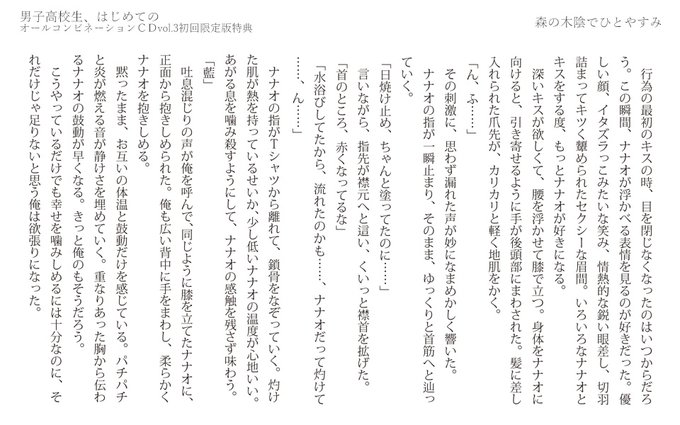 男子高校生、はじめての
オールコンビネーションＣＤvol.3初回限定版特典
森の木陰でひとやすみ
　行為の最初のキスの時、目を閉じなくなったのはいつからだろ
う。この瞬間、ナナオが浮かべる表情を見るのが好きだった。優
しい顔、イタズラっこみたいな笑み、情熱的な鋭い眼差し、切羽
詰まってキツく顰められたセクシーな眉間。いろいろなナナオと
キスをする度、もっとナナオが好きになる。
　深いキスが欲しくて、腰を浮かせて膝で立つ。身体をナナオに
向けると、引き寄せるように手が後頭部にまわされた。髪に差し
入れられた爪先が、カリカリと軽く地肌をかく。
「ん、ふ……」
　その刺激に、思わず漏れた声が妙になまめかしく響いた。
　ナナオの指が一瞬止まり、そのまま、ゆっくりと首筋へと辿っ
ていく。
「日焼け止め、ちゃんと塗ってたのに……」
　言いながら、指先が襟元へと這い、くいっと襟首を拡げた。
「首のところ、赤くなってるな」
「水浴びしてたから、流れたのかも……、ナナオだって灼けて
……、ん……」
　ナナオの指がＴシャツから離れて、鎖骨をなぞっていく。灼け
た肌が熱を持っているせいか、少し低いナナオの温度が心地いい。
あがる息を噛み殺すようにして、ナナオの感触を残さず味わう。
「藍」
　吐息混じりの声が俺を呼んで、同じように膝を立てたナナオに、
正面から抱きしめられた。俺も広い背中に手をまわし、柔らかく
ナナオを抱きしめる。
　黙ったまま、お互いの体温と鼓動だけを感じている。パチパチ
と炎が燃える音が静けさを埋めていく。重なりあった胸から伝わ
るナナオの鼓動が早くなる。きっと俺のもそうだろう。
　こうやっているだけでも幸せを噛みしめるには十分なのに、そ
れだけじゃ足りないと思う俺は欲張りになった。